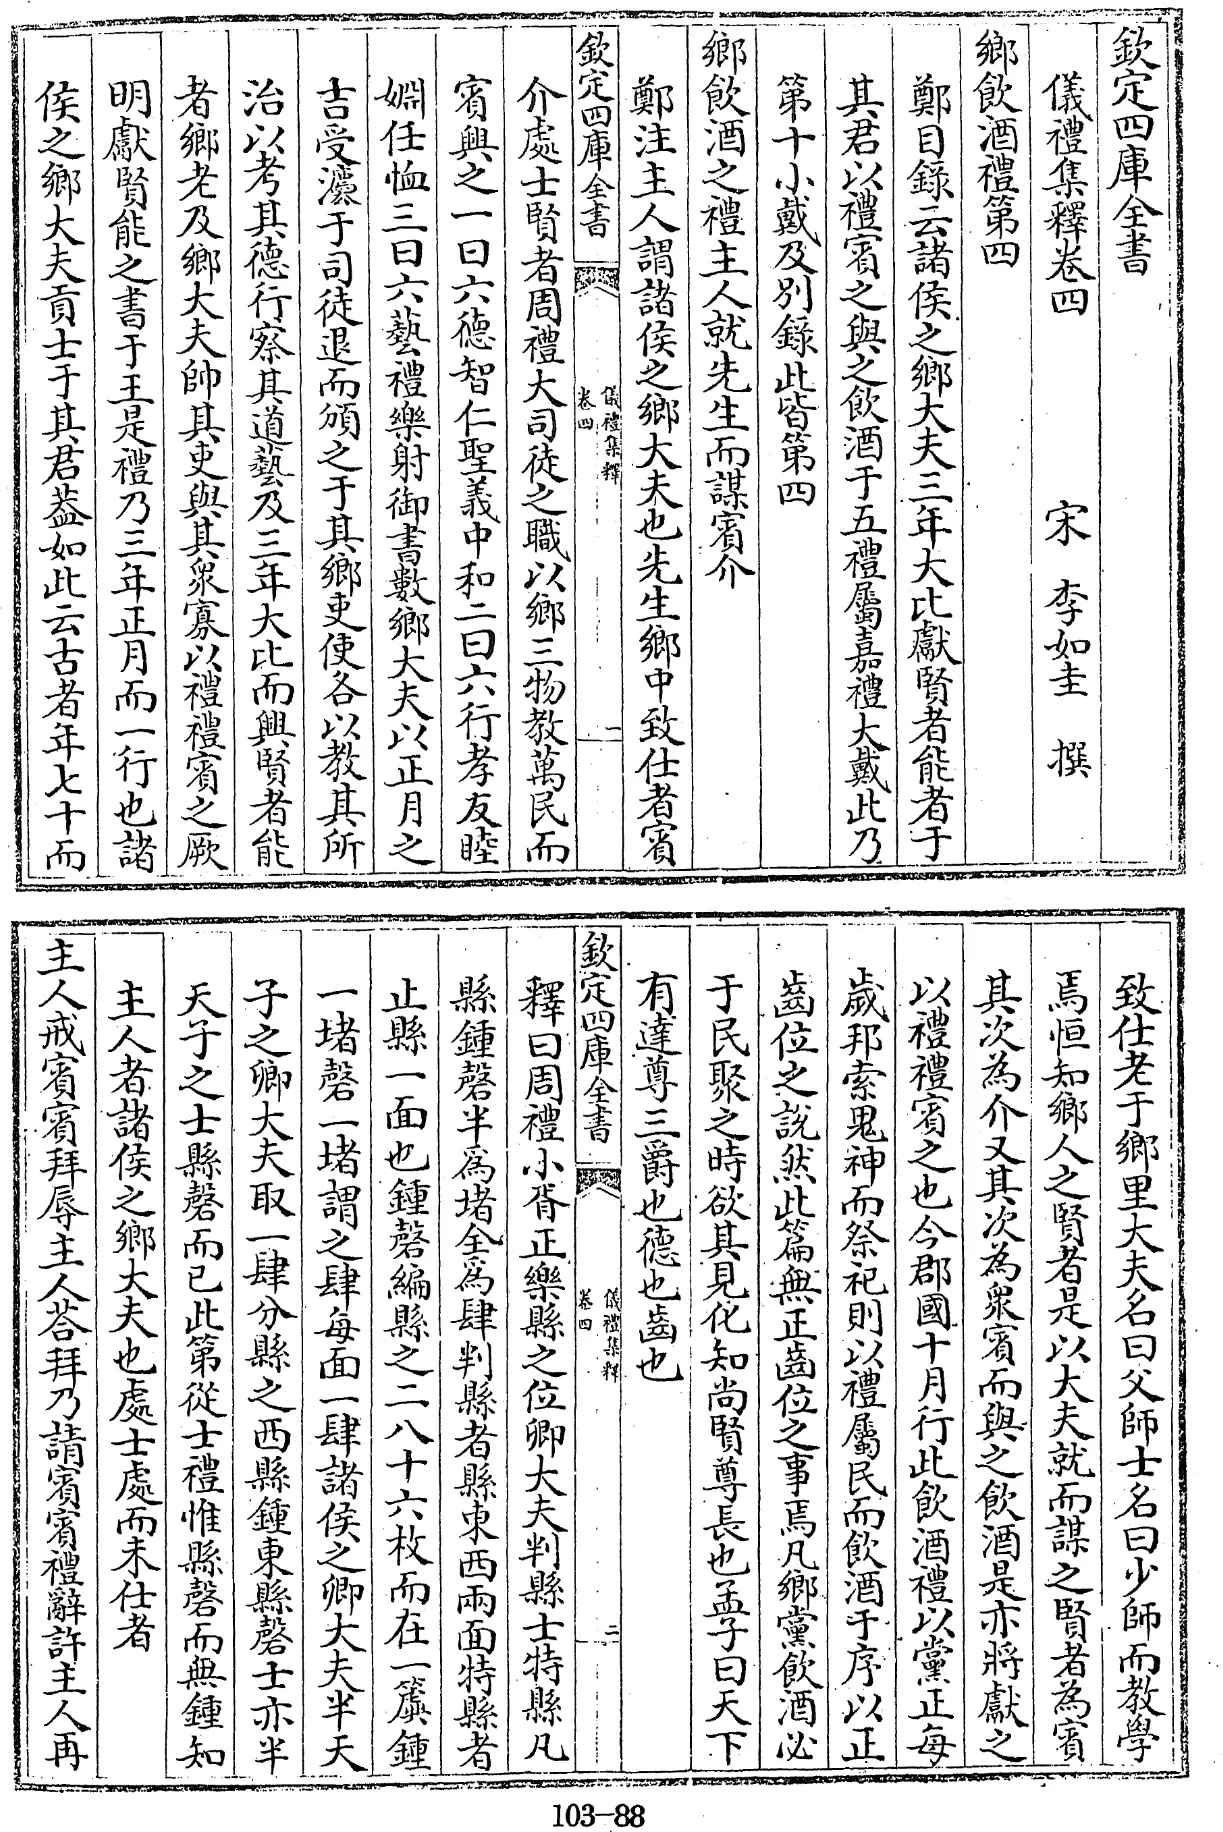 欽定四庫全書
儀禮集釋卷四
宋 李如圭 撰
鄉飲酒禮第四
鄭目錄云諸侯之鄉大夫三年大比獻賢者能者于
其君以禮賓之與之飲酒于五禮屬嘉禮大戴此乃
第十小戴及別錄此皆第四
鄉飲酒之禮主人就先生而謀賓介
鄭注主人謂諸侯之鄉大夫也先生鄉中致仕者賓
欽定四庫全書
儀禮集釋
卷四
一
介處士賢者周禮大司徒之職以鄉三物教萬民而
賓興之一曰六德智仁聖義中和二曰六行孝友睦
婣任恤三曰六藝禮樂射御書數鄉大夫以正月之
吉受灋于司徒退而頒之于其鄉吏使各以教其所
治以考其德行察其道藝及三年大比而興賢者能
者鄉老及鄉大夫帥其吏與其衆寡以禮禮賓之厥
明獻賢能之書于王是禮乃三年正月而一行也諸
侯之鄉大夫貢士于其君葢如此云古者年七十而
致仕老于鄉里大夫名曰父師士名曰少師而教學
焉恒知鄉人之賢者是以大夫就而謀之賢者為賓
其次為介又其次為衆賓而與之飲酒是亦將獻之
以禮禮賓之也今郡國十月行此飲酒禮以黨正每
歲邦索鬼神而祭祀則以禮屬民而飲酒于序以正
齒位之說然此篇無正齒位之事焉凡鄉黨飲酒必
于民聚之時欲其見化知尚賢尊長也孟子曰天下
有達尊三爵也德也齒也
欽定四庫全書
儀禮集釋
卷四
二
釋曰周禮小胥正樂縣之位卿大夫判縣士特縣凡
縣鍾磬半為堵全為肆判縣者縣東西兩面特縣者
止縣一面也鍾磬編縣之二八十六枚而在一簴鍾
一堵磬一堵謂之肆每面一肆諸侯之卿大夫半天
子之卿大夫取一肆分縣之西縣鍾東縣磬士亦半
天子之士縣磬而已此第從士禮惟縣磬而無鍾知
主人者諸侯之鄉大夫也處士處而未仕者
主人戒賓賓拜辱主人荅拜乃請賓賓禮辭許主人再
103-88